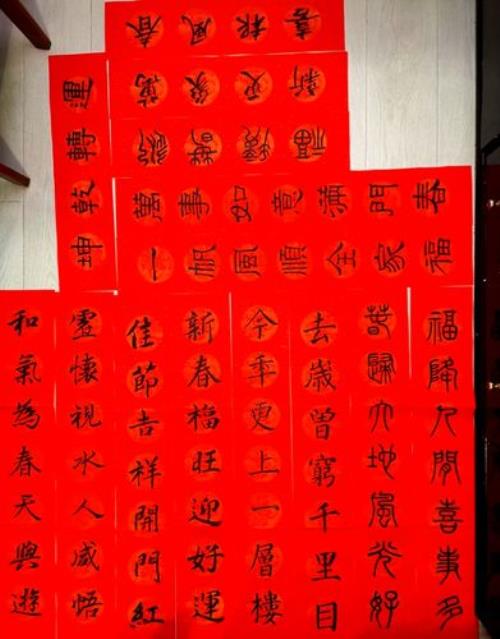 春風報喜
萬象更新
運轉乾坤
萬事如意滿門春
一帆風順全家福
福降人間喜事多
春歸大地風光好
去歲曾窮千里目
今年更上一層樓
新春福旺迎好運
佳節吉祥開門紅
虛懷視水人咸悟
和氣為春天與遊